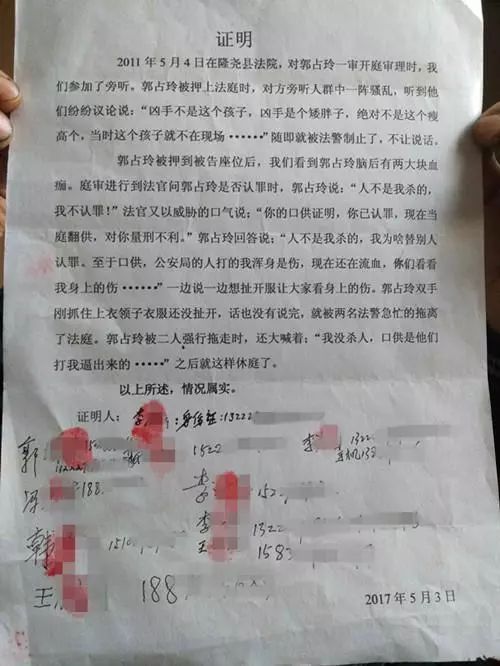 证明
2011 年 5 月 4 日在隆尧县法院，对郭占玲一审开庭审理时，我
们参加了旁听。郭占玲被押上法庭时，对方旁听人群中一阵骚乱，听到他
们纷纷议论说：“凶手不是这个孩子，凶手是个矮胖子，绝对不是这个瘦
高个，当时这个孩子就不在现场······”随即就被法警制止了，不让说话。
郭占玲被押到被告座位后，我们看到郭占玲脑后有两大块血
痂。庭审进行到法官问郭占玲是否认罪时，郭占玲说：“人不是我杀的，
我不认罪！”法官又以威胁的口气说：“你的口供证明，你已认罪，现在当
庭翻供，对你量刑不利。”郭占玲回答说：“人不是我杀的，我为啥替别人
认罪。至于口供，公安局的人打的我浑身是伤，现在还在流血，你们看看
我身上的伤······”一边说一边想扯开服让大家看身上的伤。郭占玲双手
刚抓住上衣领子衣服还没扯开，话也没有说完，就被两名法警急忙的拖离
了法庭。郭占玲被二人强行拖走时，还大喊着：“我没杀人，口供是他们
打我逼出来的·····”之后就这样休庭了。
以上所述，情况属实。
证明人：李 1322
郭 150 1522 李 132
188 李 152
李 1322
韩 1510 王 1583
王 188
2017 年 5 月 3 日